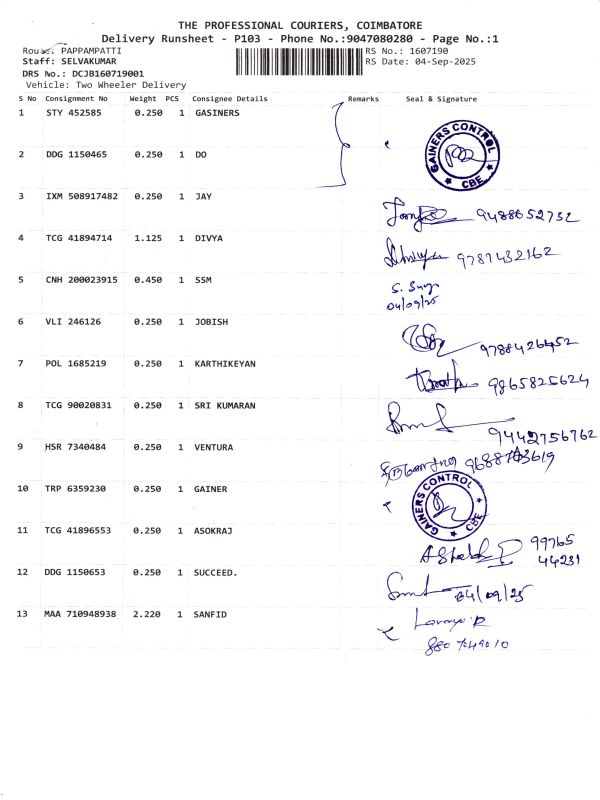 THE PROFESSIONAL COURIERS, COIMBATORE
Delivery Runsheet - P103 - Phone No.:9047080280 - Page No.:1
PAPPAMPATTI RS No.: 1607190
Staff: SELVAKUMAR RS Date: 04-Sep-2025
DRS No.: DCJB160719001
Vehicle: Two Wheeler Delivery
S No Consignment No Weight PCS Consignee Details Remarks Seal & Signature
1 STY 452585 0.250 1 GASINERS
GAINERS CONTROL
CBE
2 DDG 1150465 0.250 1 DO
3 IXM 508917482 0.250 1 JAY
9488652732
4 TCG 41894714 1.125 1 DIVYA
9787432162
5 CNH 200023915 0.450 1 SSM
04/09/25
6 VLI 246126 0.250 1 JOBISH
9788426452
7 POL 1685219 0.250 1 KARTHIKEYAN
9865825624
8 TCG 90020831 0.250 1 SRI KUMARAN
9442756762
9 HSR 7340484 0.250 1 VENTURA
10 TRP 6359230 0.250 1 GAINER
GAINERS CONTROL
CBE
11 TCG 41896553 0.250 1 ASOKRAJ
99765
44231
12 DDG 1150653 0.250 1 SUCCEED.
04/09/25
13 MAA 710948938 2.220 1 SANFID
8807049010